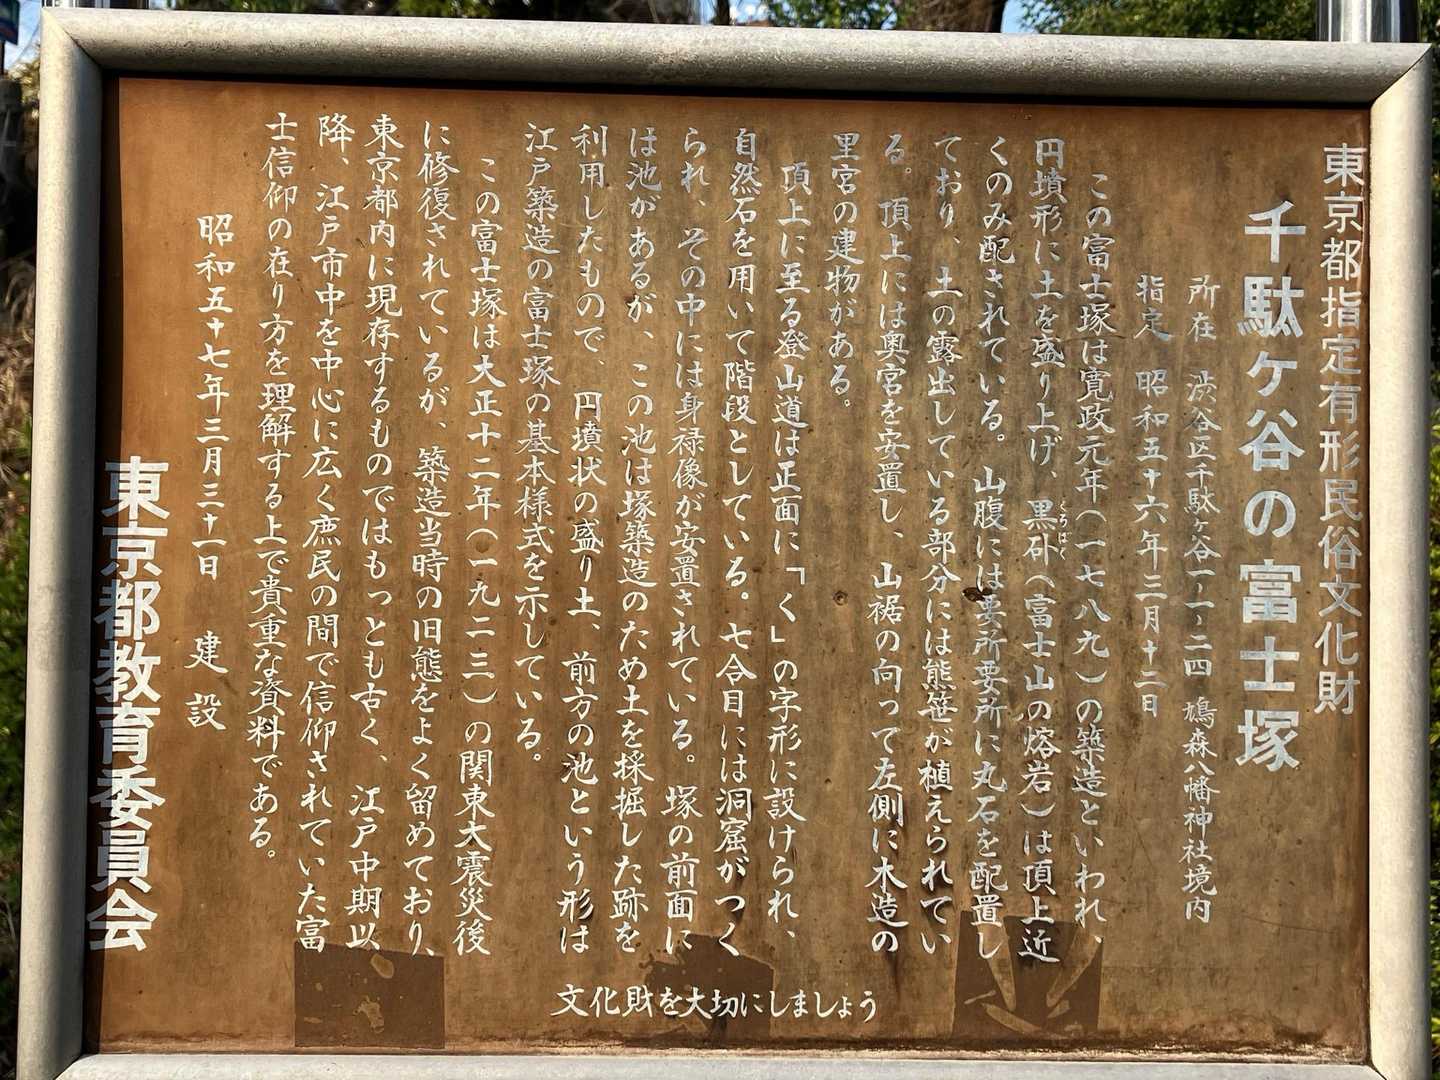 東京都指定有形民俗文化財
千駄ヶ谷の富士塚
所在　渋谷区千駄ヶ谷一ー一ー二四　鳩森八幡神社境内
指定　昭和五十六年三月十二日
この富士塚は寛政元年(一七八九)の築造といわれ、
円墳形に土を盛り上げ、黒砕(富士山の熔岩)は頂上近
くろぼく
くのみ配されている。山腹には要所要所に丸石を配置し
ており、土の露出している部分には熊笹が植えられてい
る。頂上には奥宮を安置し、山裾の向って左側に木造の
里宮の建物がある。
頂上に至る登山道は正面に「く」の字形に設けられ、
自然石を用いて階段としている。七合目には洞窟がつく
られ、その中には身禄像が安置されている。塚の前面に
は池があるが、この池は塚築造のため土を採掘した跡を
利用したもので、円墳状の盛り土、前方の池という形は
江戸築造の富士塚の基本様式を示している。
この富士塚は大正十二年(一九二三)の関東大震災後
に修復されているが、築造当時の旧態をよく留めており、
東京都内に現存するものではもっとも古く、江戸中期以
降、江戸市中を中心に広く庶民の間で信仰されていた富
士信仰の在り方を理解する上で貴重な資料である。
昭和五十七年三月三十一日　建設
東京都教育委員会
文化財を大切にしましょう